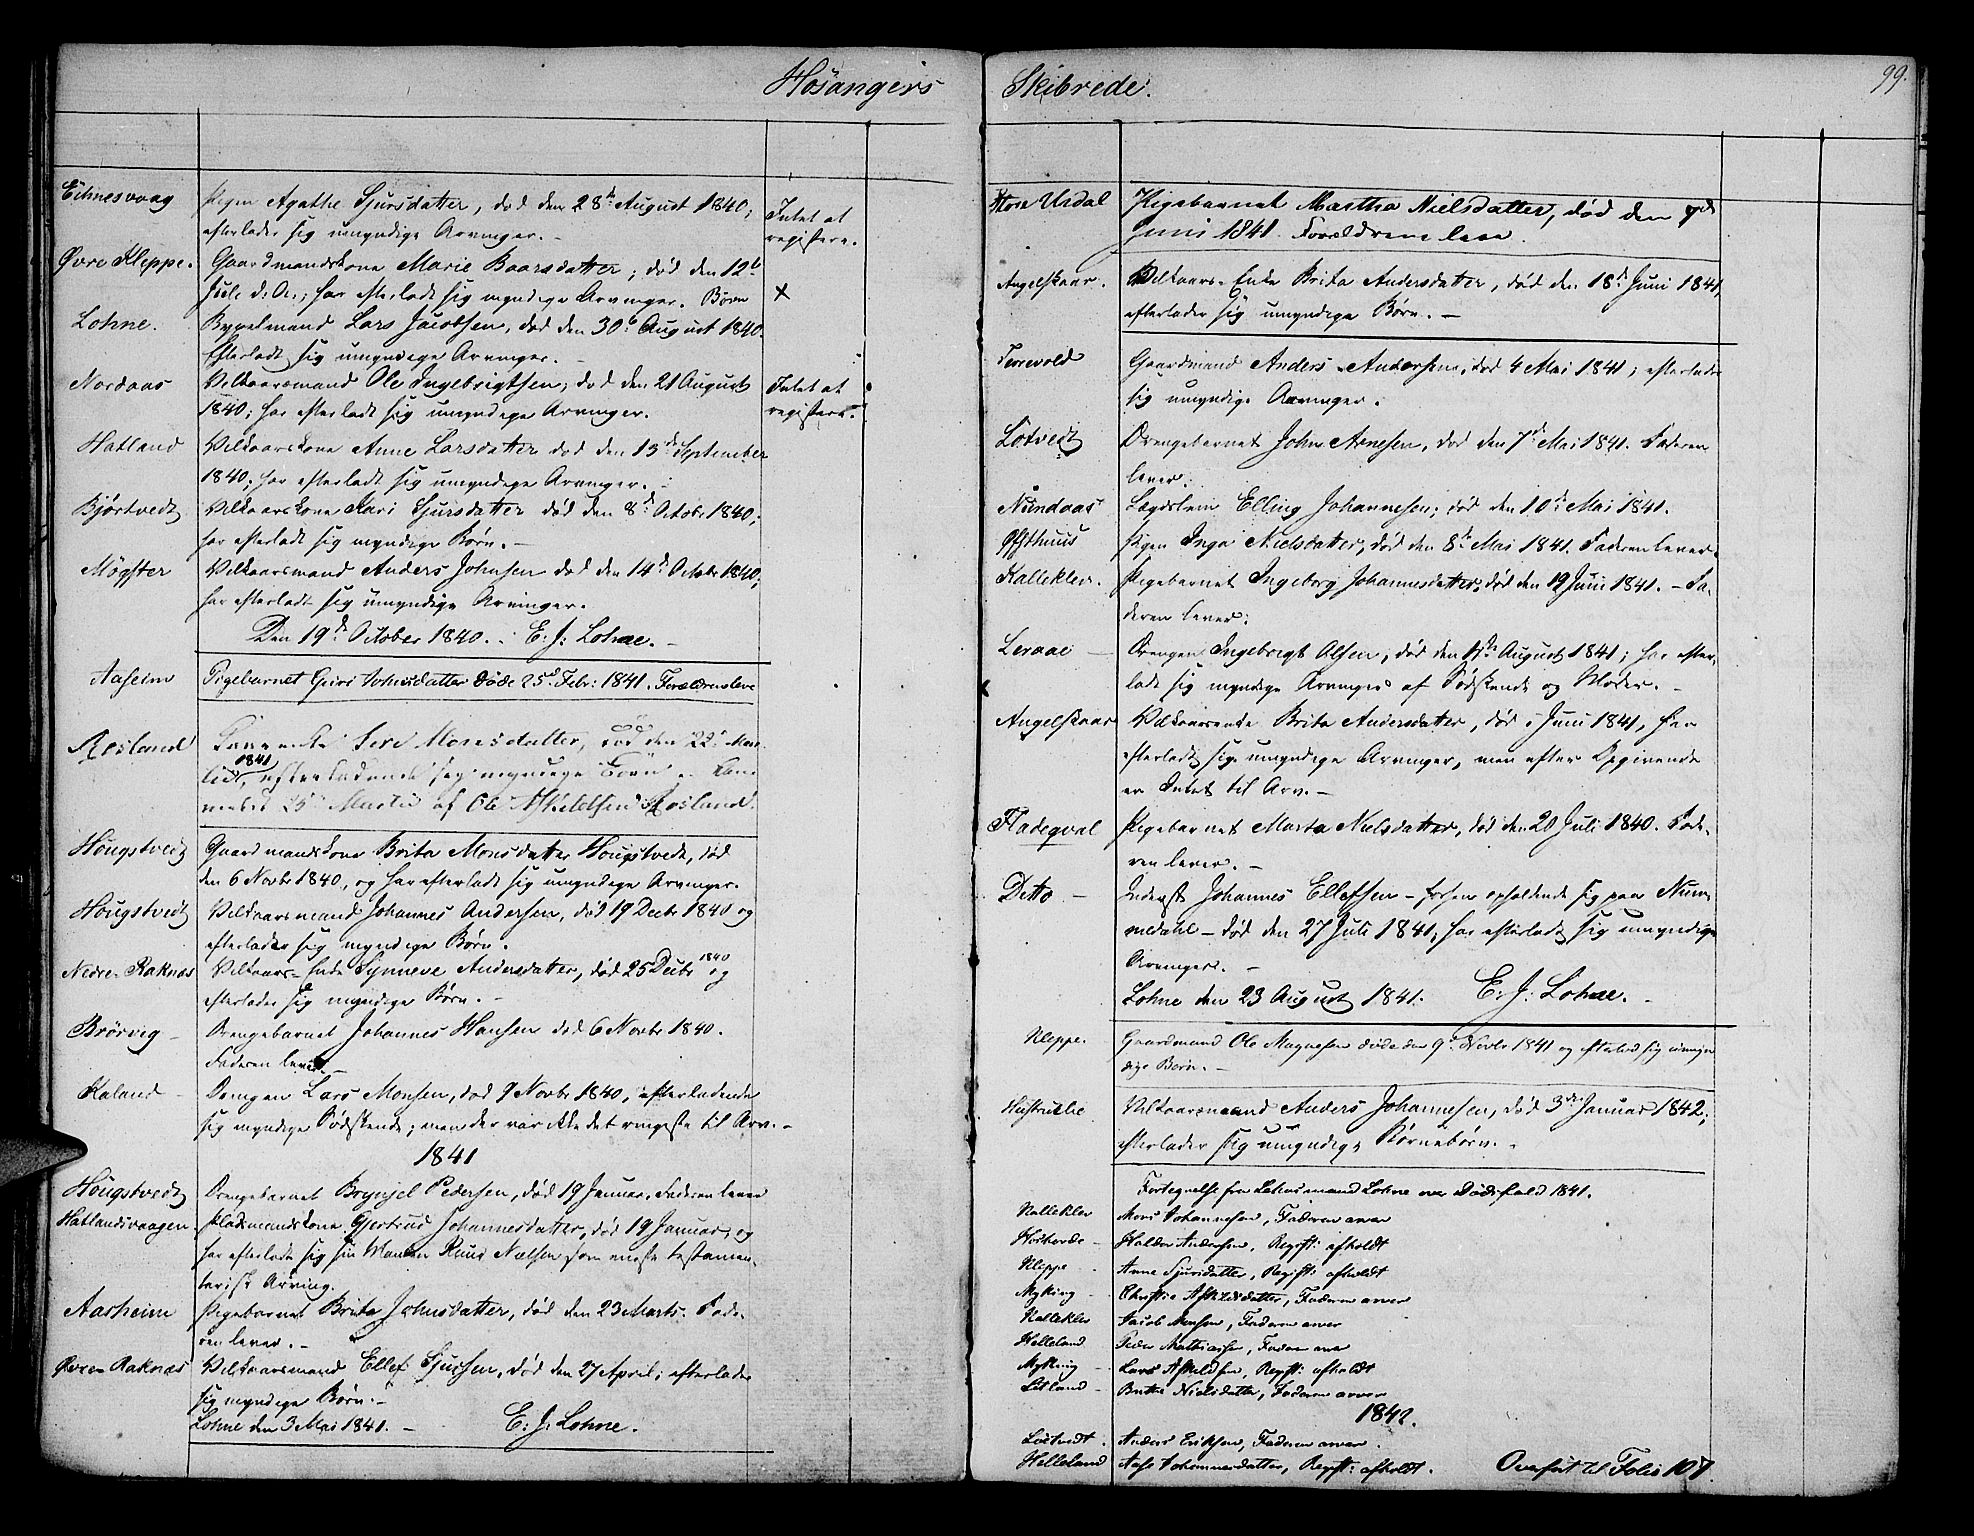 Hosangers Skibrede.
99.
Eitnesvaag Pigen Agathe Sjursdatter, død den 28de August 1840;
efterlader sig umyndige Arvinger. –
Intet at
registere.
Øvre Kleppe. Gaardmandskone Marie Baarsdatter; død den 12te
Juli d: A:; har efterladt sig myndige Arvinger. Børn
X
Lohne. Bygselmand Lars Jacobsen, død den 30te August 1840.
Efterladt sig umyndige Arvinger. –
Nordaas Vilkaarsmand Ole Ingebrigtsen; død den 21 August
1840; har efterladt sig umyndige Arvinger.
Intet at
registere.
Hatland Vilkaarskone Anne Larsdatter død den 13de September
1840; har efterladt sig umyndige Arvinger. –
Bjørtvedt Vilkaarskone Kari Sjursdatter død den 8de Octobr 1840;
har efterladt sig myndige Børn. –
Møgster Vilkaarsmand Anders Johnsen død den 14de Octobr 1840;
har efterladt sig umyndige Arvinger.
Den 19de October 1840. E: J: Lohne. –
Aaseim Pigebarnet Guri Johnsdatter døde 25de Febr: 1841. Forældrene leve
Rosland Monsdatter, død den 22de
1841 efterladende sig myndige Børn
25 Martii af Ole Askildsen Rosland.
Hougstvedt Gaardmandskone Brita Monsdatter Hougstvedt, død
den 6 Novbr 1840, og har efterladt sig umyndige Arvinger.
Hougstvedt Vilkaarsmand Johannes Andersen, død 19 Decbr 1840 og
efterlader sig myndige Børn.
Nedre Raknæs Vilkaars-Enke Synneve Andersdatter, død 25 Decbr 1840 og
efterlader sig myndige Børn. –
Brørvig – Drengebarnet Johannes Hansen død 6 Novbr 1840.
Faderen lever. –
Kaland – Drengen Lars Monsen, død 9 Novbr 1840, efterladende
sig myndige Sødskende; men der var ikke det ringeste til Arv. –
1841
Hougstvedt Drengebarnet Brynjel Pedersen, død 19 Januar. Faderen lever
Hatlandsvaagen Pladsmandskone Gjertrud Johannesdatter, død 19 Januar, og
har efterladt sig sin Mand Knud Nielsen som eneste testamen-
tarisk Arving.
Aasheim Pigebarnet Brita Johnsdatter, død den 23 Marts. Fade-
ren lever. –
Øvre Raknæs Vilkaarsmand Ellef Sjursen, død den 27 April; efterlader
sig myndige Børn. –
Lohne den 3 Mai 1841. – E: J: Lohne.
Store Urdal Pigebarnet Martha Nielsdatter, død den 7de
Juni 1841. Forældrene leve.
Angelskaar. Vilkaars-Enke Brita Andersdatter, død den 18de Juni 1841,
efterlader sig umyndige Børn. –
Terrevold Gaardmand Anders Andersen, død 4 Mai 1841; efterlader
sig umyndige Arvinger.
Lotvedt Drengebarnet John Arnesen, død den 7de Mai 1841. Faderen
lever.
Nundaas Lægdslem Elling Johannesen; død den 10de Mai 1841.
Pigen Inga Nielsdatter, død den 8de Mai 1841. Faderen lever.
Kallekleiv. Pigebarnet Ingeborg Johannesdatter, død den 19 Juni 1841. – Fa-
deren lever.
Leraae – Drengen Ingebrigt Olsen, død den 11te August 1841; har efter-
ladt sig myndige Arvinger af Sødskende og Moder. –
Angelskaar Vilkaarsenke Brita Andersdatter, død i Juni 1841, har
efterladt sig umyndige Arvinger, men efter Opgivende
er Intet til Arv. –
Fladeqval Pigebarnet Marta Nielsdatter, død den 20 Juli 1840. Fade-
ren lever. –
Ditto – Inderst Johannes Ellefsen – forhen opholdende sig paa Num-
medahl – død den 27 Juli 1841, har efterladt sig umyndige
Arvinger. –
Lohne den 23 August 1841. E: J: Lohne. –
Kleppe. Gaardmand Ole Magnesen døde den 9de Novbr 1841 og efterlod sig umyn-
dige Børn. –
Vilkaarsmand Anders Johannesen, død 3die Januar 1842;
efterlader sig umyndige Børnebørn. –
Fortegnelse fra Lehnsmand Lohne over Dødsfald 1841.
Kalleklev Mons Johannesen, Faderen arver
Halder Andersen, Regist: afholdt
Kleppe – Anne Sjursdatter, Regist: afholdt
Myking – Christie Askildsdatter, Faderen arver
Kalleklev Jacob Monsen, Faderen arver
Helleland Peder Mathiassen, Faderen arver
Myking – Lars Askeldsen, Regist: afholdt
Litland – Brithe Nielsdatter, Faderen arver
1842.
Lotvedt. Anders Eriksen, Faderen arver.
Helleland Aase Johannesdatter, Regist: afholdt. Overført til Folio 107.